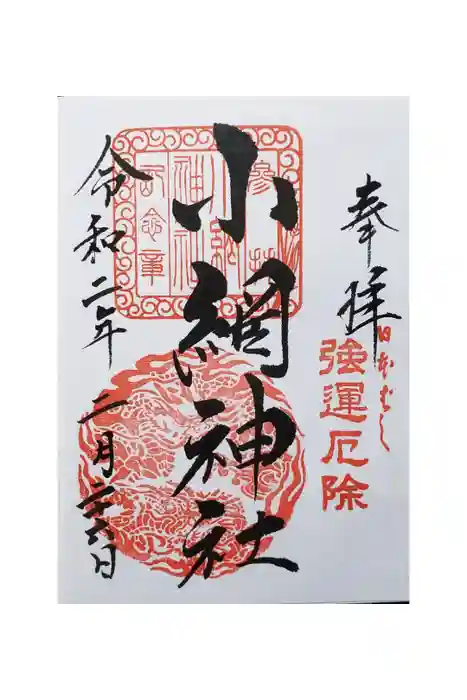 奉拝
日本ばし
強運厄除
小網神社
令和二年
二月二十六日